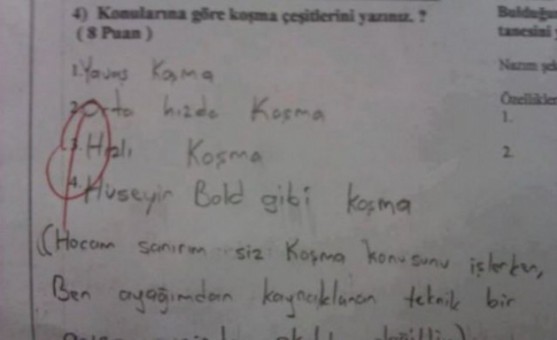 4) Konularına göre koşma çeşitlerini yazınız. ?
( 8 Puan )
1. Yavaş Koşma
2. Orta hızda Koşma
3. Hızlı Koşma
4. Hüseyin Bold gibi koşma
(Hocam sanırım siz Koşma konusunu işlerken,
Ben ayağımdan kaynaklanan teknik bir
tanesini
Nazım
1.
2